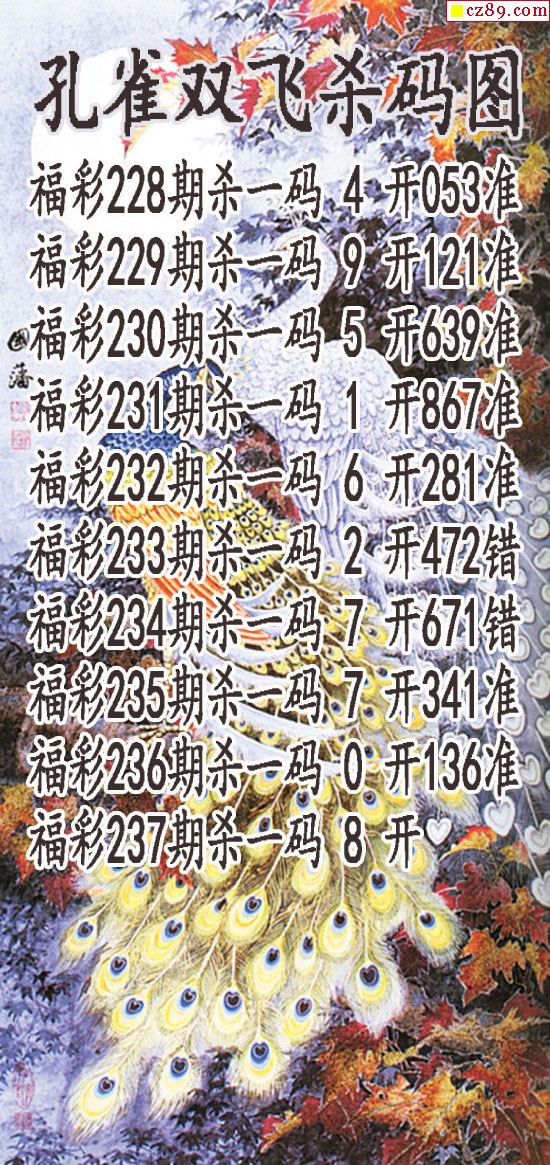 cz89.com
孔雀双飞杀码图
福彩228期杀一码 4 开053准
福彩229期杀一码 9 开121准
福彩230期杀一码 5 开639准
福彩231期杀一码 1 开867准
福彩232期杀一码 6 开281准
福彩233期杀一码 2 开472错
福彩234期杀一码 7 开671错
福彩235期杀一码 7 开341准
福彩236期杀一码 0 开136准
福彩237期杀一码 8 开
國藩